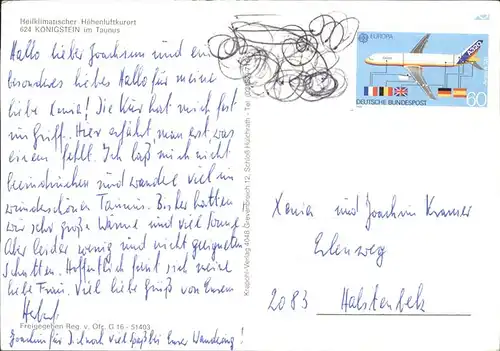 Heilklimatischer Höhenluftkurort
624 KÖNIGSTEIN im Taunus
Hallo lieber Joachim und ein
besonders liebes Hallo für meine
liebe Xenia! Die Kur hat mich fest
im Griff. Hier erfährt man erst, was
einem fehlt. Ich laß mich nicht
beeindrucken und wandere viel im
wunderschönen Taunus. Bisher hatten
wir sehr große Wärme und viel Sonne
Aber leider wenig und nicht geeigneten
Schatten. Hoffentlich freut sich meine
liebe Frau. Viel liebe Grüße von Eurem
Herbert
Freigegeben Reg. v. Ofr. G 16 - 51403
Joachim für Dich noch viel Spaß bei Eurer Wanderung!
Krapohl-Verlag 4048 Grevenbroich 12, Schloß Hülchrath - Tel.
EUROPA
DEUTSCHE BUNDESPOST
60
Xenia und Joachim Kramer
Erlenweg
2083 Halstenbek